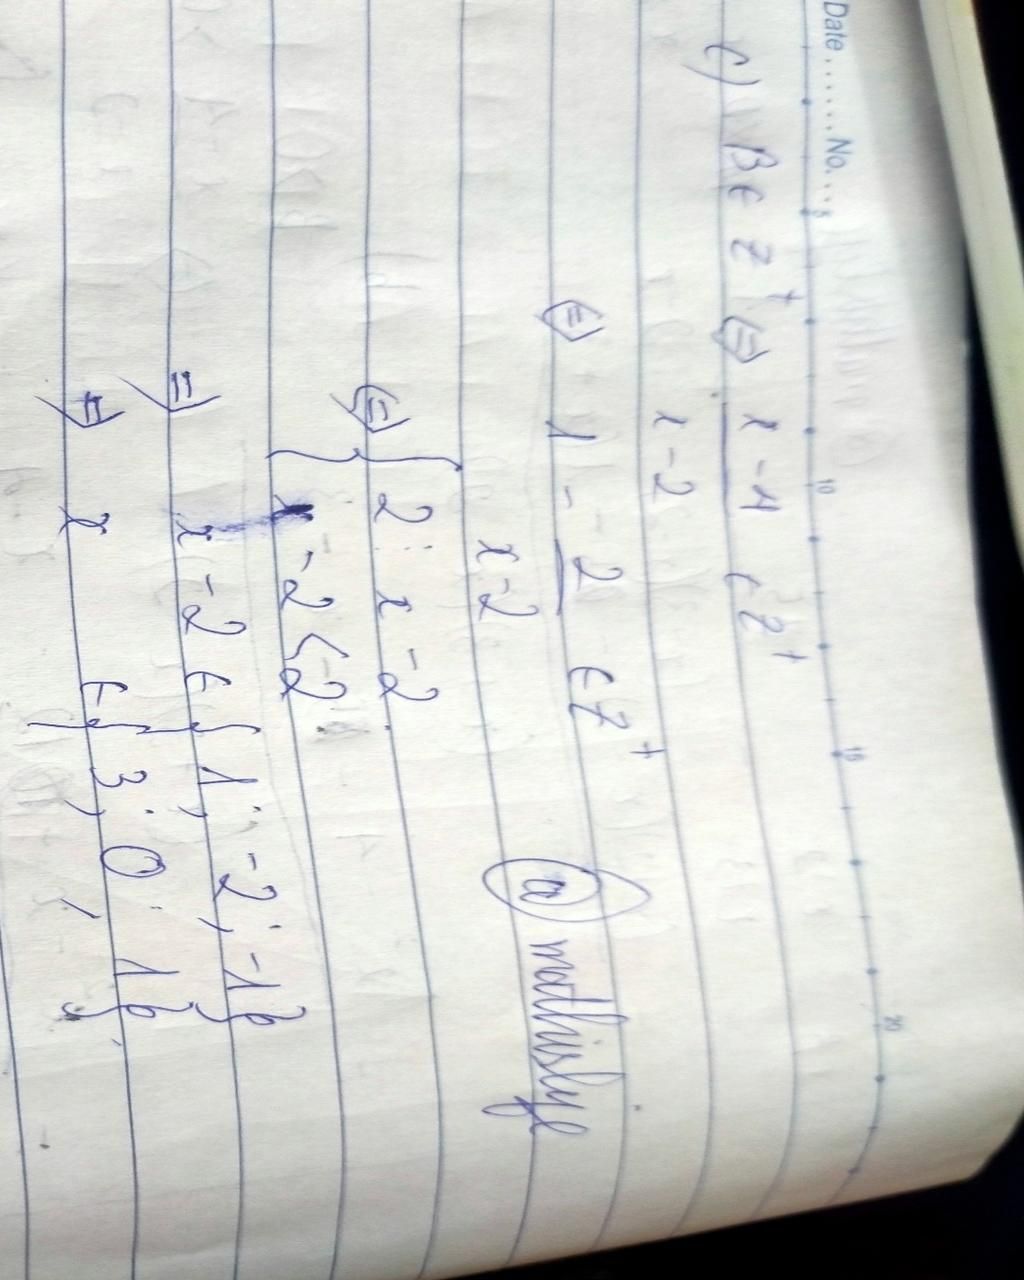 Date ...... No. ...
5 10 15 20
c) B ∈ Z⁺ ⇔ x-4 / x-2 ∈ Z⁺
⇔ 1 - 2 / x-2 ∈ Z⁺
@ mathislife
⇔ { 2 ⋮ x-2
x-2 < 2
⇒ x-2 ∈ { 1; -2; -1 }
⇒ x ∈ { 3; 0; 1 }